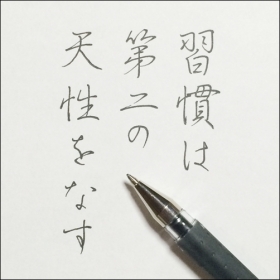 習慣は
第二の
天性をなす